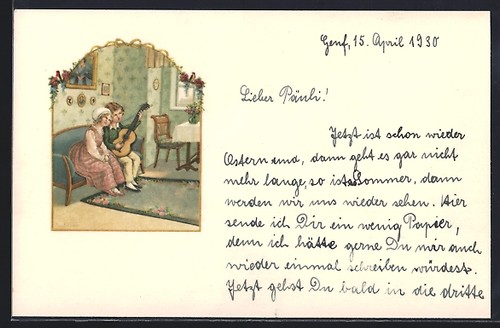 Genf, 15. April 1930
Lieber Päuli!
Jetzt ist schon wieder
Ostern und, dann geht es gar nicht
mehr lange, so ist es Sommer, dann
werden wir uns wieder sehen. Hier
sende ich Dir ein wenig Papier,
denn ich hätte gerne Du mir auch
wieder einmal schreiben würdest.
Jetzt gehst Du bald in die dritte